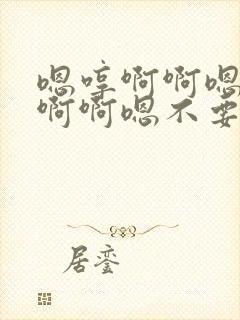 嗯哼啊啊嗯
啊啊嗯不要
居銮